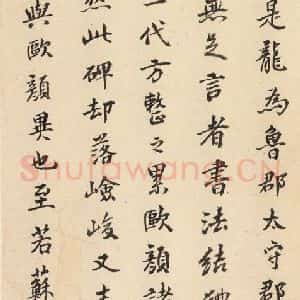 是龍為魯郡太守郡
無足言者書法結
一代方整之累歐顏諸
然此碑却落嶮峻又
與歐顏異也至若蘇
Shufawang.CN